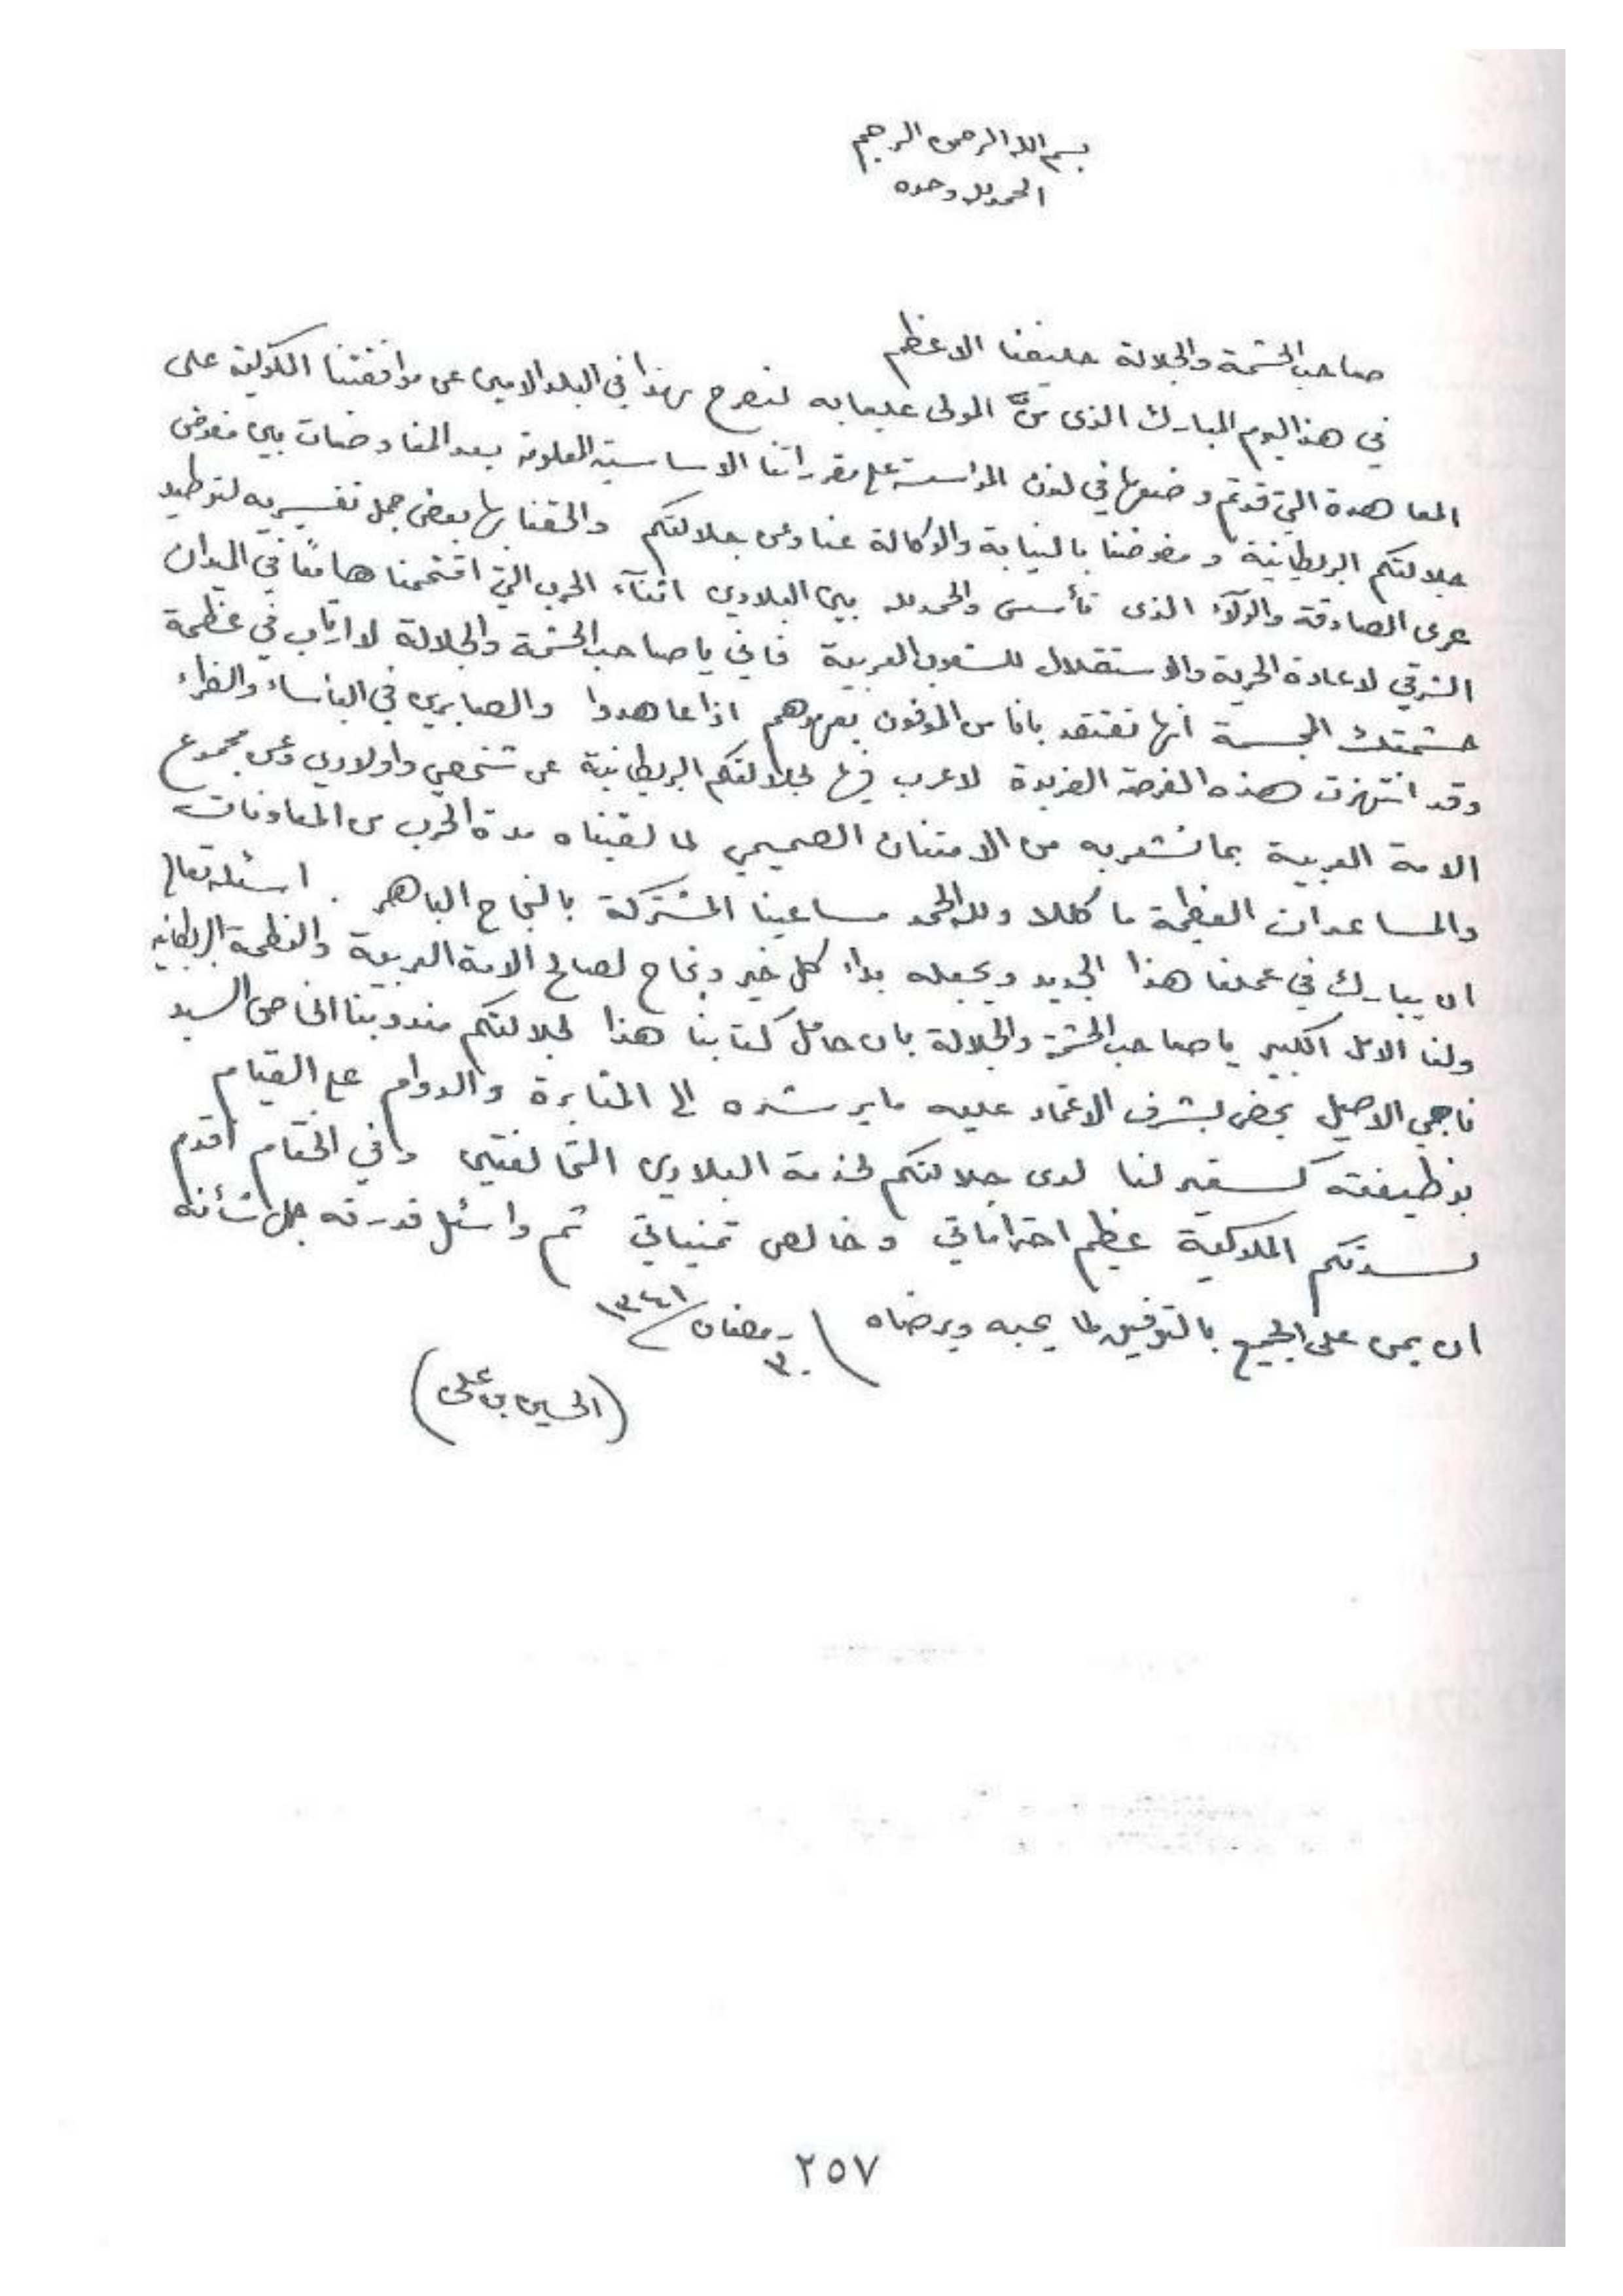 بسم الله الرحمن الرحيم
الحمد لله وحده
صاحب الحشمة والجلالة حليفنا الاعظم
في هذا اليوم المبارك الذى منَّ المولى علينا به لنصرح بهذا في البلد الامين عن موافقتنا الملوكية على
المعاهدة التي قد تم وضعها في لندن المؤاسسة على مقرراتنا الاساسية المعلومة بعد المفاوضات بين مفوض
جلالتكم البريطانية ومفوضنا بالنيابة والوكالة عنا وعن جلالتكم والحقنا بها بعض جمل تفسيريه لتوطيد
عرى الصداقة والولآء الذى تأسس والحمد لله بين البلادين اثنآء الحرب التي اقتحمناها معًا في الميدان
الشرقي لاعادة الحرية والاستقلال للشعوب العربية فاني يا صاحب الحشمة والجلالة لا ارتاب في عظمة
حشمتك انها تعتقد بانا من الموفون بعهدهم اذا عاهدوا والصابرين في البأساء والضراء
وقد انتهزت هذه الفرصة الفريدة لاعرب فيها لجلالتكم البريطانية عن شخصي واولادي وعن مجموع
الامة العربية بما نشعر به من الامتنان الصميمي لما لقيناه مدة الحرب من المعاونات
والمساعدات العظيمة ما كللا ولله الحمد مساعينا المشتركة بالنجاح الباهر . اسئله تعالى
ان يبارك في عملنا هذا الجديد ويجعله بداء كل خير ونجاح لصالح الامة العربية والعظمة البريطانيه
ولنا الامل الكبير يا صاحب الحشمة والجلالة بان حامل كتابنا هذا لجلالتكم مندوبنا الخاص السيد
ناجي الاصيل يحض بشرف الاعتماد عليه ما يرشده الى المثابرة والدوام على القيام
بوظيفته كسفير لنا لدى جلالتكم لخدمة البلادين المتحالفتين وفي الختام أقدم
لسدتكم الملوكية عظيم احتراماتي وخالص تمنياتي ثم واسئل قدرته جل شأنه
ان يمن على الجميع بالتوفيق لما يحبه ويرضاه ٣٠ رمضان / ١٣٤١
(الحسين بن علي)
٢٥٧